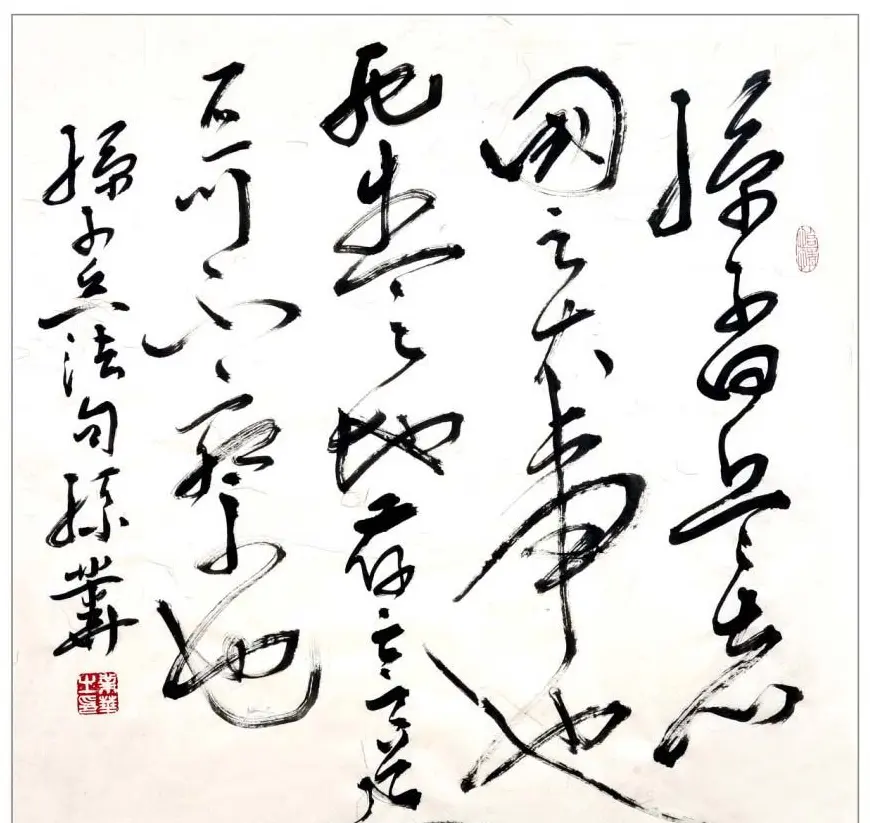 孫子曰兵者
國之大事也
死生之地存亡之道
不可不察也
孫子兵法句孫